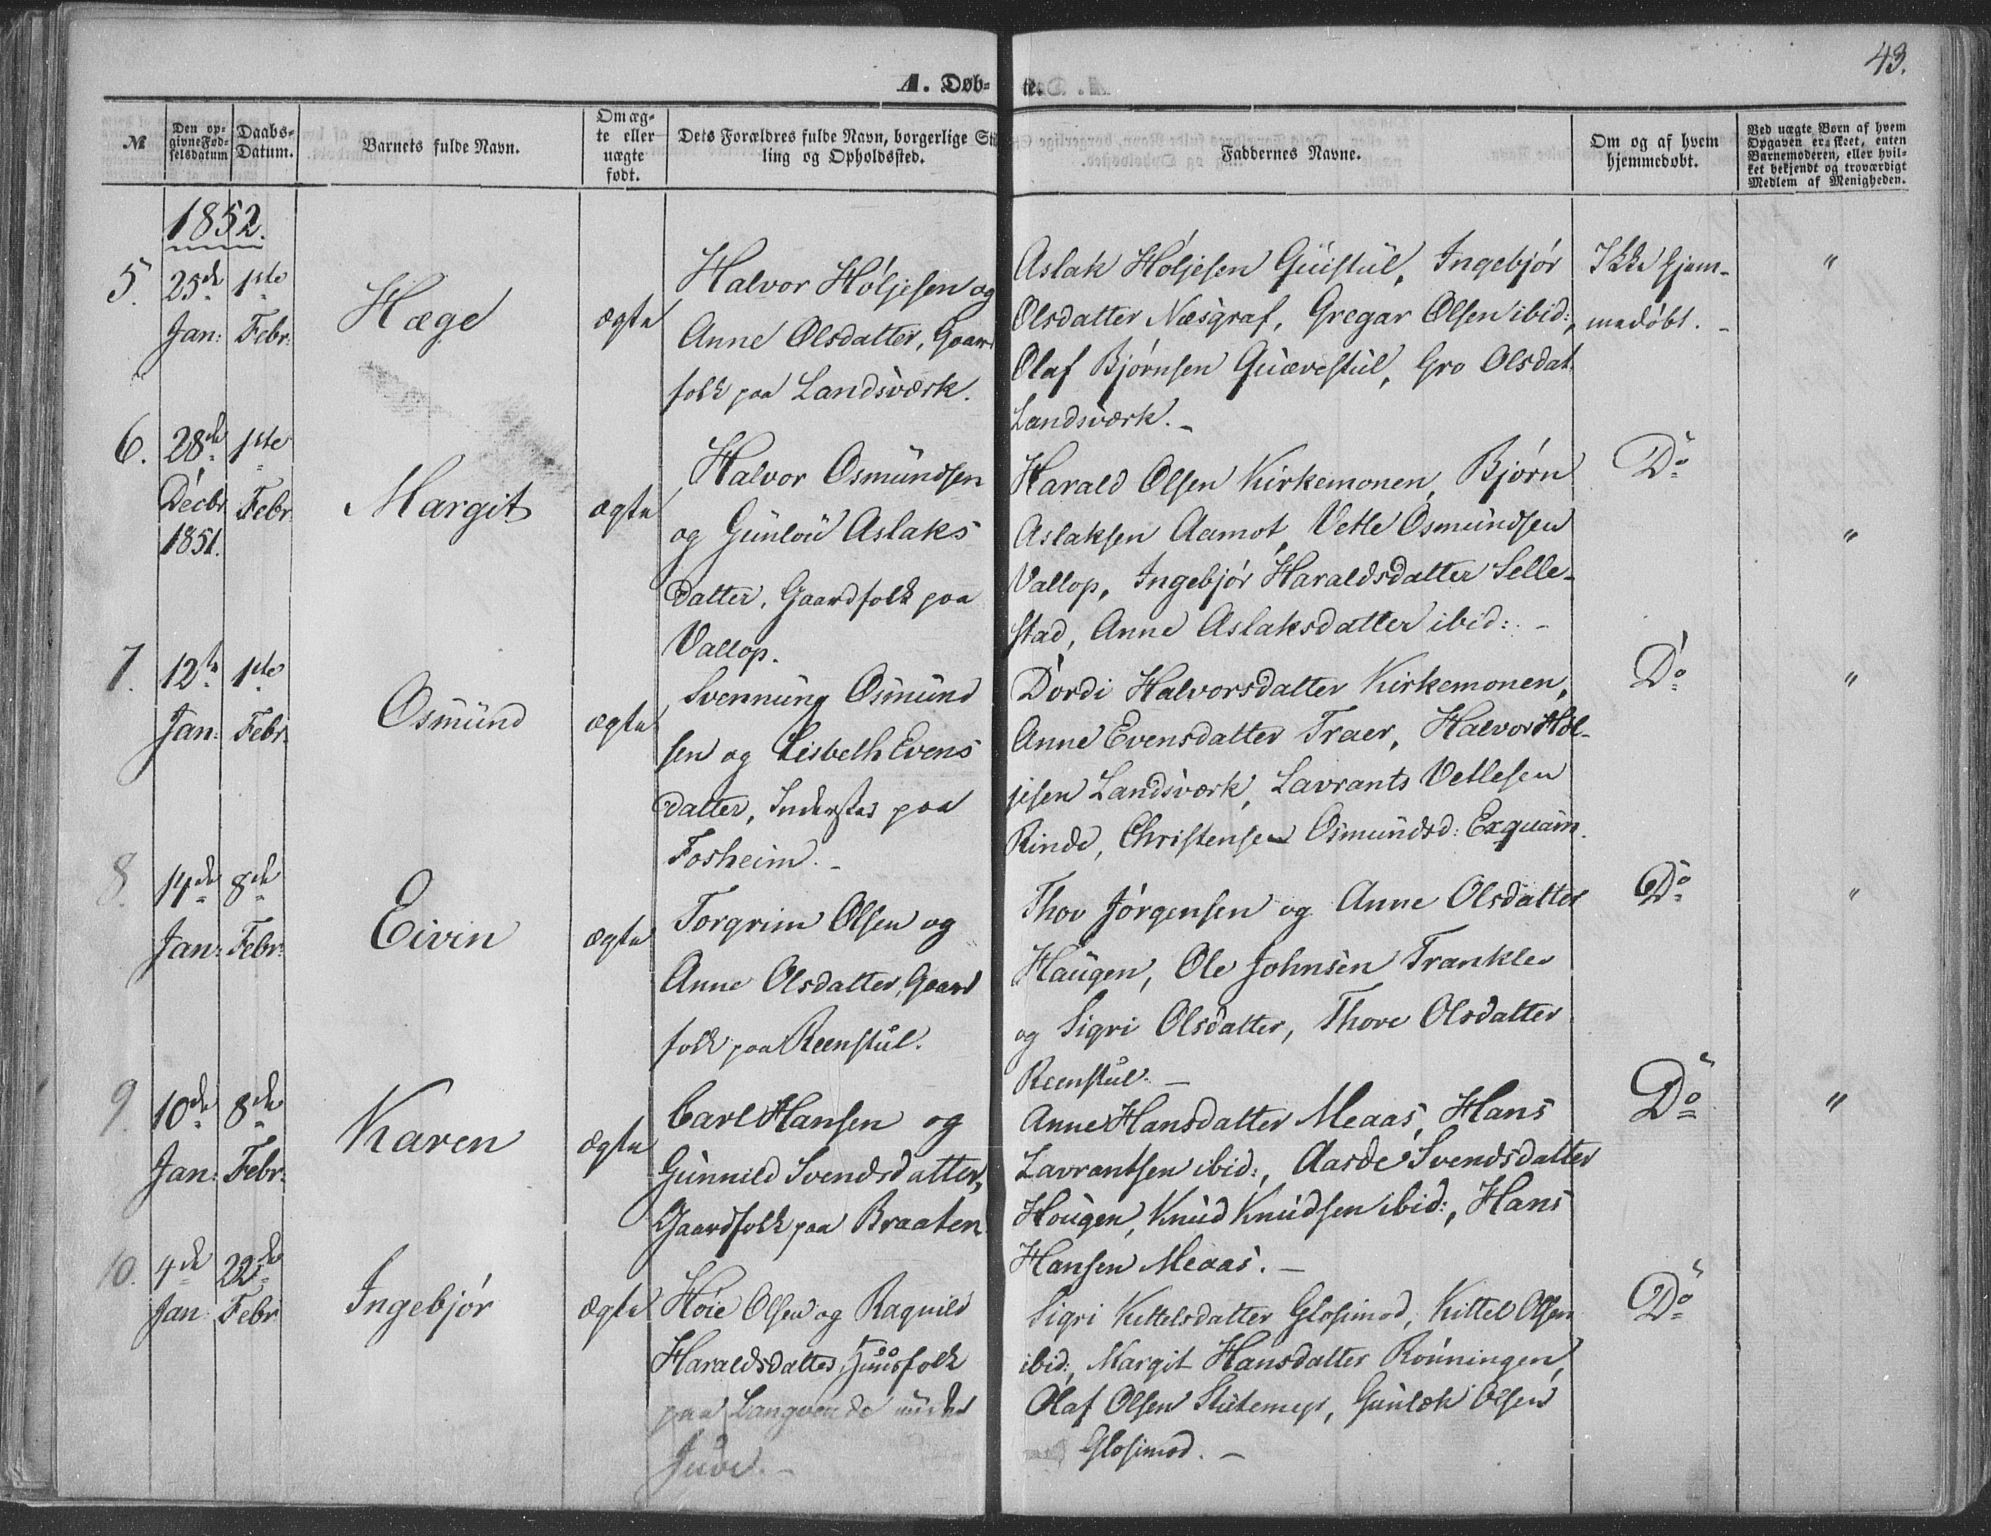 43.
A. Døb-te.
№
Den op-
givne Fød-
selsdatum
Daabs-
Datum.
Barnets fulde Navn.
Om æg-
te eller
uægte
født.
Dets Forældres fulde Navn, borgerlige Stil-
ling og Opholdssted.
Faddernes Navne.
Om og af hvem
hjemmedøbt.
Ved uægte Børn af hvem
Opgaven er skeet, enten
Barnemoderen, eller hvil-
ket bekjendt og troværdigt
Medlem af Menigheden.
1852.
5. 25de 1ste
Jan: Febr:
Hæge
ægte
Halvor Høljesen og
Anne Olsdatter, Gaard
folk paa Landsværk.
Aslak Høljesen Guistul, Ingebjør
Olsdatter Næsgraf, Gregar Olsen ibid:,
Olaf Bjørnsen Quævestul, Gro Olsdat.
Landsværk. -
Ikke hjem-
medøbt. -
"
6. 28de 1ste
Decbr Febr
1851.
Margit
ægte
Halvor Osmundsen
og Gunlou Aslaks
datter, Gaardfolk paa
Vallop.
Harald Olsen Kirkemonen, Bjørn
Aslaksen Aamot, Vetle Osmundsen
Vallop, Ingebjør Haraldsdatter Selle-
stad, Anne Aslaksdatter ibid: -
Do
"
7. 12te 1ste
Jan: Febr:
Osmund
ægte
Svennung Osmund
sen og Lisbeth Evens
datter, Inderstes paa
Fosheim. -
Dordi Halvorsdatter Kirkemonen,
Anne Evensdatter Traer, Halvor Høl-
jesen Landsværk, Lavrants Vetlesen
Rinde, Christensen Osmundsd:
Do
"
8. 14de 8de
Jan: Febr:
Eivin
ægte
Torgrim Olsen og
Anne Olsdatter, Gaard
folk paa Reenstul.
Thov Jørgensen og Anne Olsdatter
Haugen, Ole Johnsen Trankler
og Sigri Olsdatter, Thore Olsdatter
Reenstul. -
Do
"
9. 10de 8de
Jan: Febr:
Karen
ægte
Carl Hansen og
Gunnild Svendsdatter,
Gaardfolk paa Braaten.
Anne Hansdatter Meaas, Hans
Lavrantsen ibid:, Aasde Svendsdatter
Hougen, Knud Knudsen ibid:, Hans
Hansen Meaas. -
Do
"
10. 4de 22de
Jan: Febr
Ingebjør
ægte
Høie Olsen og Ragnild
Haraldsdatter, Huusfolk
paa under
Juve. -
Sigri Kittelsdatter Glosimod, Kittel Olsen
ibid:, Margit Hansdatter Rønningen,
Olaf Olsen Stutemyr, Gunlek Olsen
Glosimod. -
Do